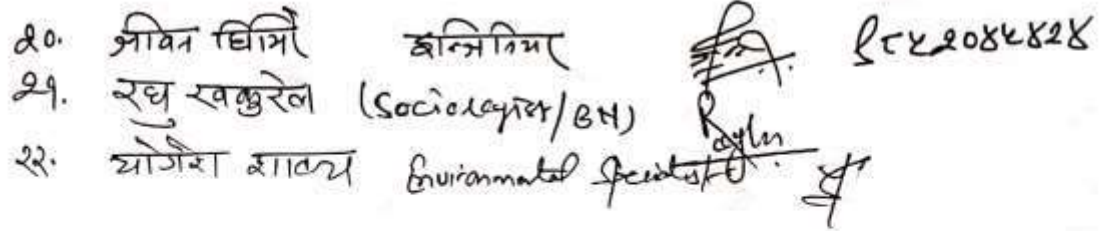 २०. घिमिरे इन्जिनियर
२१. रघु खकुरेल (Sociologist/BN)
२२. योगेश शाक्य Environmental Specialist